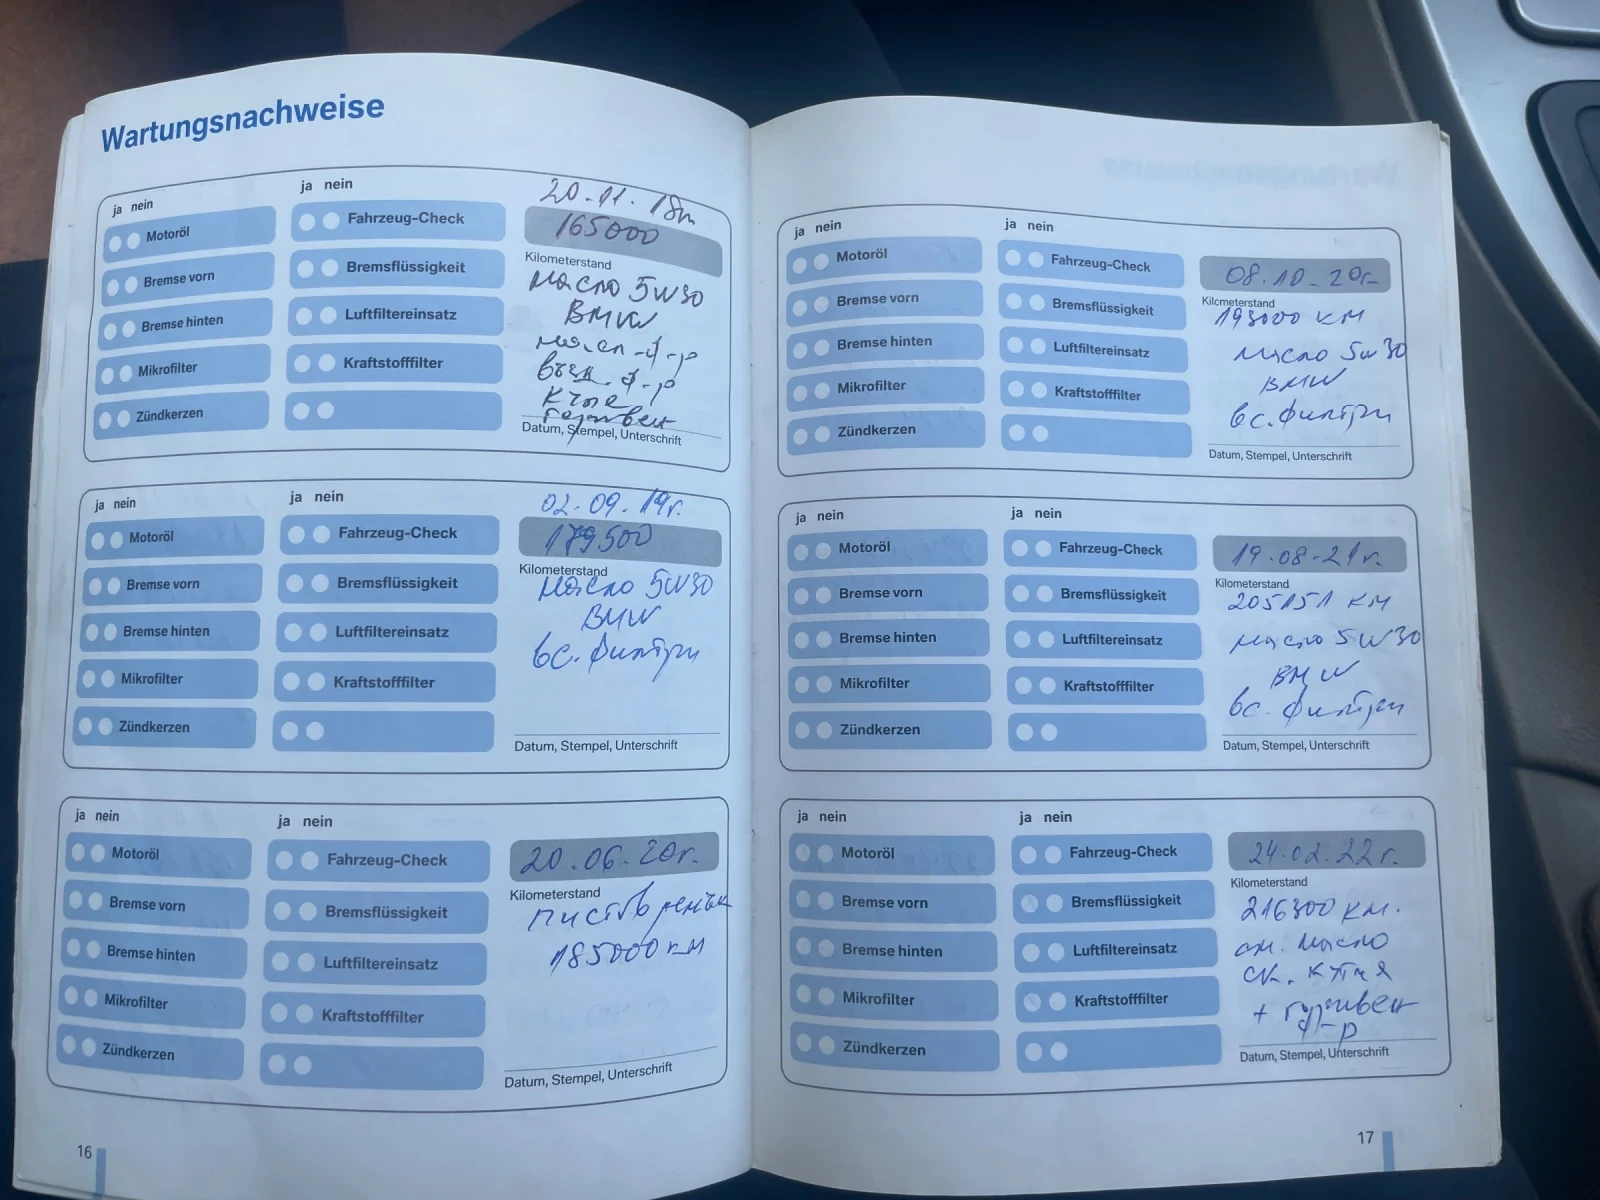 Wartungsnachweise
ja nein
ja nein
Motoröl
Bremse vorn
Bremse hinten
Mikrofilter
Zündkerzen
Fahrzeug-Check
Bremsflüssigkeit
Luftfiltereinsatz
Kraftstofffilter
20.11.18г
165000
Kilometerstand
масло 5W30
BMW
масл. ф-р
възд. ф-р
купе
горивен
Datum, Stempel, Unterschrift
ja nein
ja nein
Motoröl
Bremse vorn
Bremse hinten
Mikrofilter
Zündkerzen
Fahrzeug-Check
Bremsflüssigkeit
Luftfiltereinsatz
Kraftstofffilter
02.09.19г.
179500
Kilometerstand
масло 5W30
BMW
вс. филтри
Datum, Stempel, Unterschrift
ja nein
ja nein
Motoröl
Bremse vorn
Bremse hinten
Mikrofilter
Zündkerzen
Fahrzeug-Check
Bremsflüssigkeit
Luftfiltereinsatz
Kraftstofffilter
20.06.20г.
Kilometerstand
185000 км
Datum, Stempel, Unterschrift
16
ja nein
ja nein
Motoröl
Bremse vorn
Bremse hinten
Mikrofilter
Zündkerzen
Fahrzeug-Check
Bremsflüssigkeit
Luftfiltereinsatz
Kraftstofffilter
08.10.20г
Kilometerstand
193000 км
масло 5W30
BMW
вс. филтри
Datum, Stempel, Unterschrift
ja nein
ja nein
Motoröl
Bremse vorn
Bremse hinten
Mikrofilter
Zündkerzen
Fahrzeug-Check
Bremsflüssigkeit
Luftfiltereinsatz
Kraftstofffilter
19.08.21г.
Kilometerstand
205151 км
масло 5W30
BMW
вс. филтри
Datum, Stempel, Unterschrift
ja nein
ja nein
Motoröl
Bremse vorn
Bremse hinten
Mikrofilter
Zündkerzen
Fahrzeug-Check
Bremsflüssigkeit
Luftfiltereinsatz
Kraftstofffilter
24.02.22г.
Kilometerstand
216300 км.
см. масло
+ горивен
ф-р
Datum, Stempel, Unterschrift
17